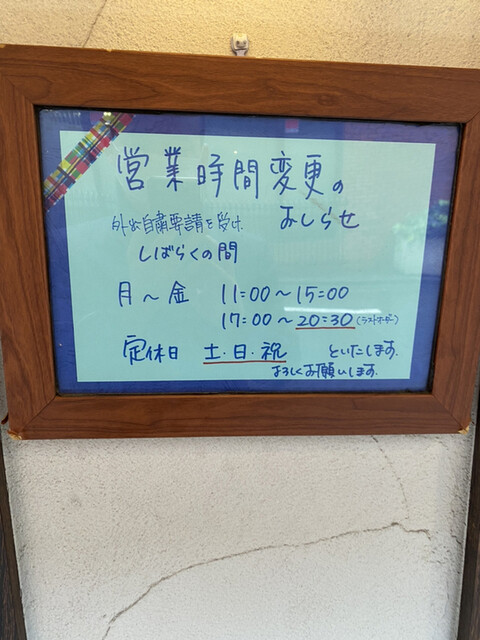 営業時間変更の
おしらせ
外出自粛要請を受け
しばらくの間
月～金 11:00～15:00
17:00～20:30(ラストオーダー)
定休日 土・日・祝 といたします。
よろしくお願いします。